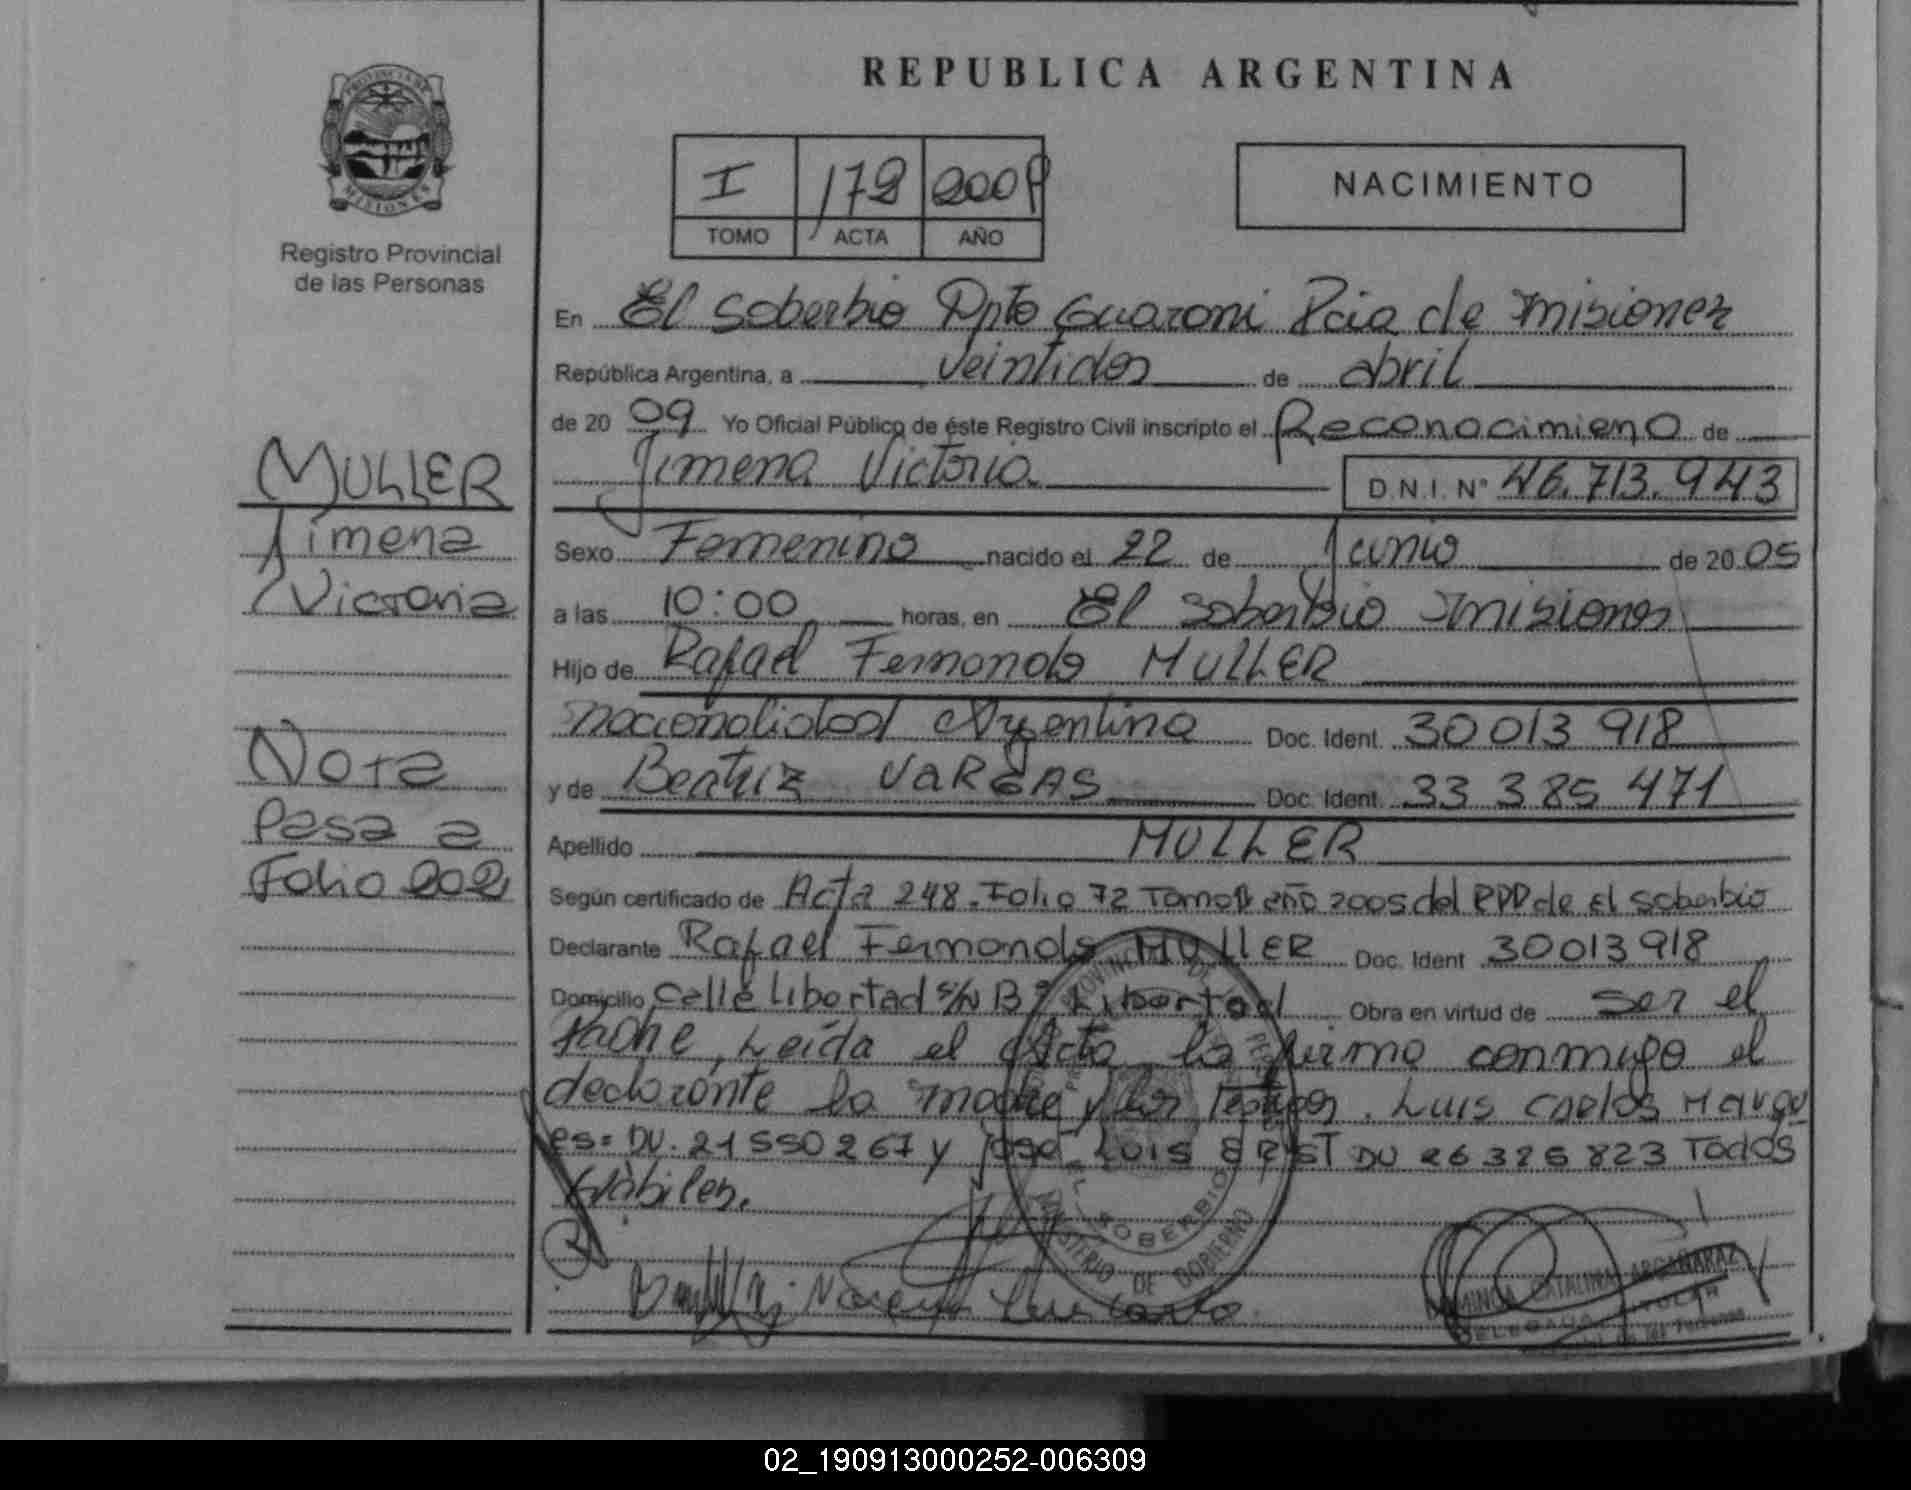 REPUBLICA ARGENTINA
PROVINCIA DE
MISIONES
Registro Provincial
de las Personas
I 172 2009
TOMO ACTA AÑO
NACIMIENTO
En El Soberbio Dpto Guarani Pcia de Misiones
República Argentina, a veintidos de abril
de 20 09 Yo Oficial Público de éste Registro Civil inscripto el Reconocimieno de
Jimena Victoria D.N.I. N° 46.713.943
MULLER
Jimena
Victoria
Sexo Femenino nacido el 22 de Junio de 20 05
a las 10:00 horas, en El Soberbio Misiones
Hijo de Rafael Fernando MULLER
nacionalidad Argentina Doc. Ident. 30 013 918
y de Beatriz VARGAS Doc. Ident. 33 385 471
Nota
Pasa a
Folio 202
Apellido MULLER
Según certificado de Acta 248. Folio 72 Tomo año 2005 del RPP de El Soberbio
Declarante Rafael Fernando MULLER Doc. Ident 30013918
Domicilio Calle Libertad s/n B° Libertad Obra en virtud de ser el
Padre, Leída el Acta la firma conmigo el
declarante la madre y los Testigos. Luis Carlos Marqu
es= DU. 21 550 267 y José Luis DU 26 326 823 Todos
Habiles.
EL SOBERBIO
MINISTERIO DE GOBIERNO
CATALINA ARGAÑARAZ
02_190913000252-006309